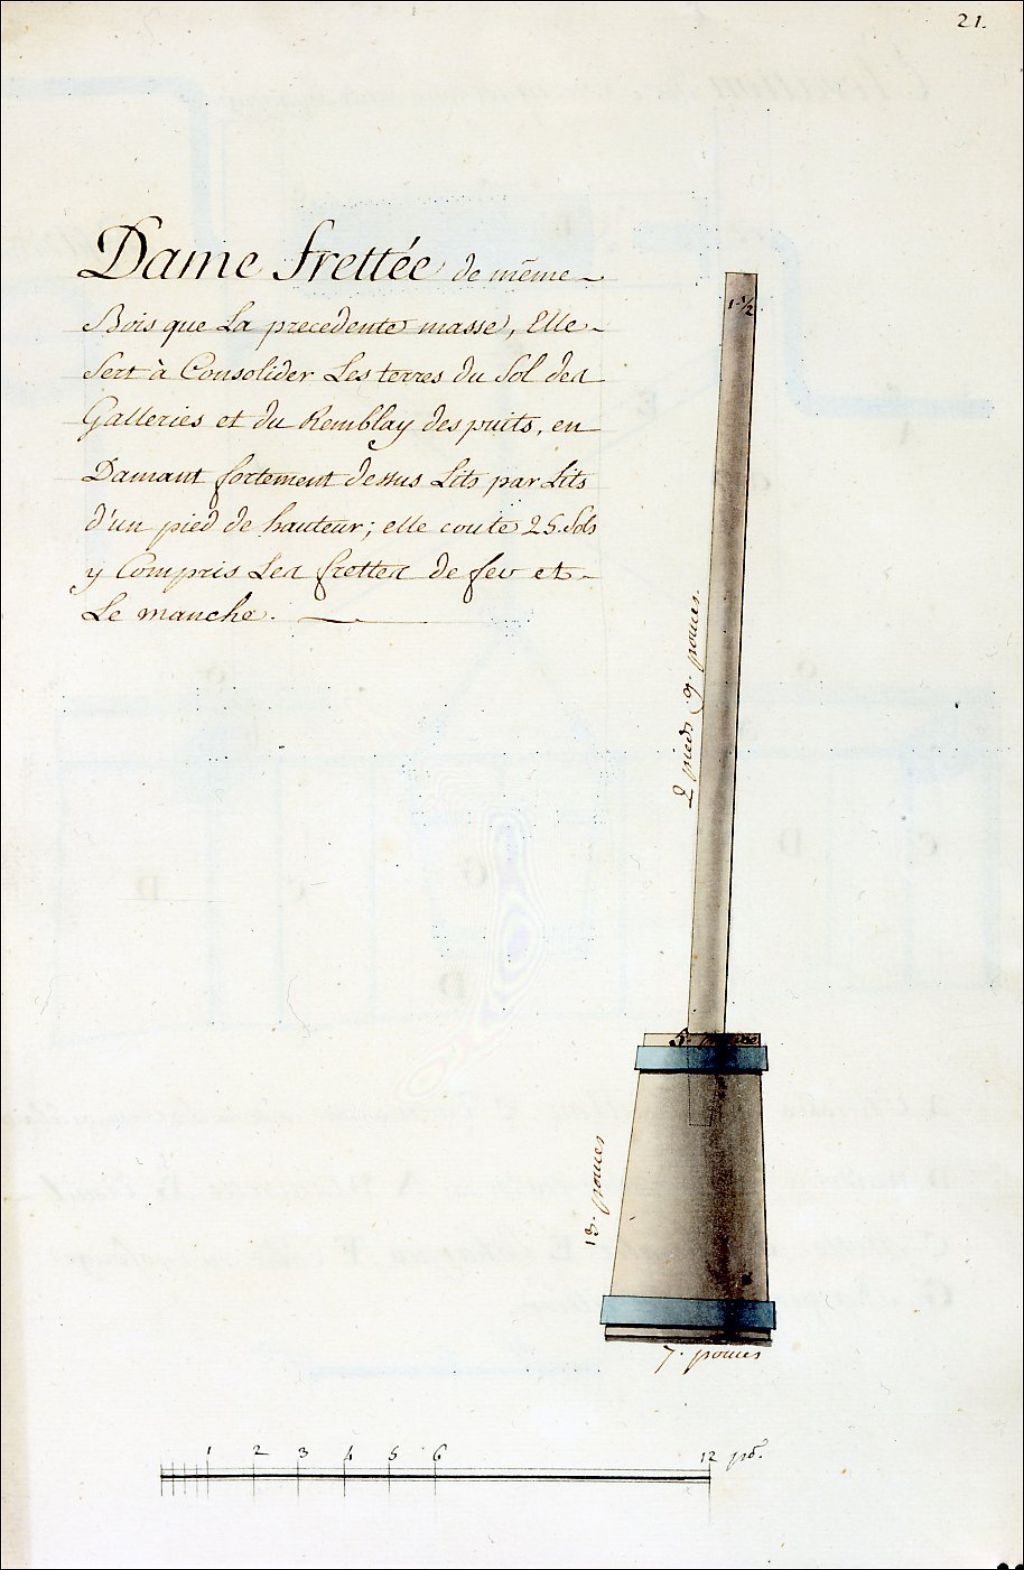 21.
Dame frettée de même
Bois que La precedente masse, Elle
Sert à Consolider Les terres du Sol des
Galleries et du Remblay des puits, en
Damant fortement dessus Lits par Lits
d'un pied de hauteur; elle coute 25. Sols
y Compris Les frettes de fer et
Le manche.
1. 1/2
2 pieds 9. pouces.
5. pouces
13. pouces
7. pouces
1 2 3 4 5 6 12 po.